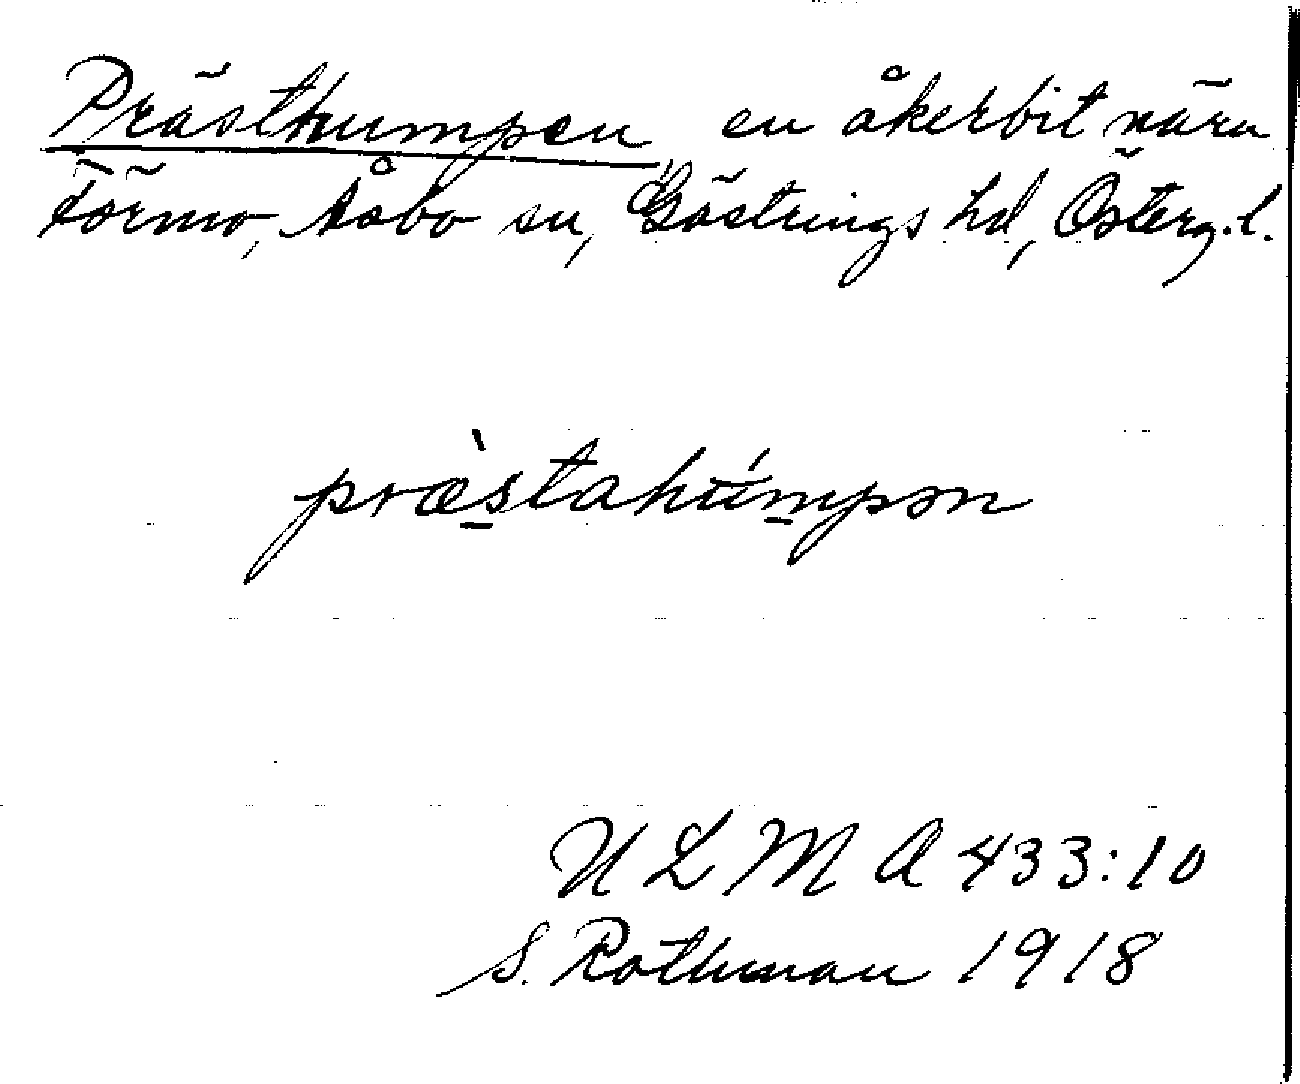 Prästhumpen en åkerbit nära
Törmo, Åsbo sn, Göstrings hd, Österg.l.
præ̀stahúmpən
ULMA 433:10
S. Rothman 1918